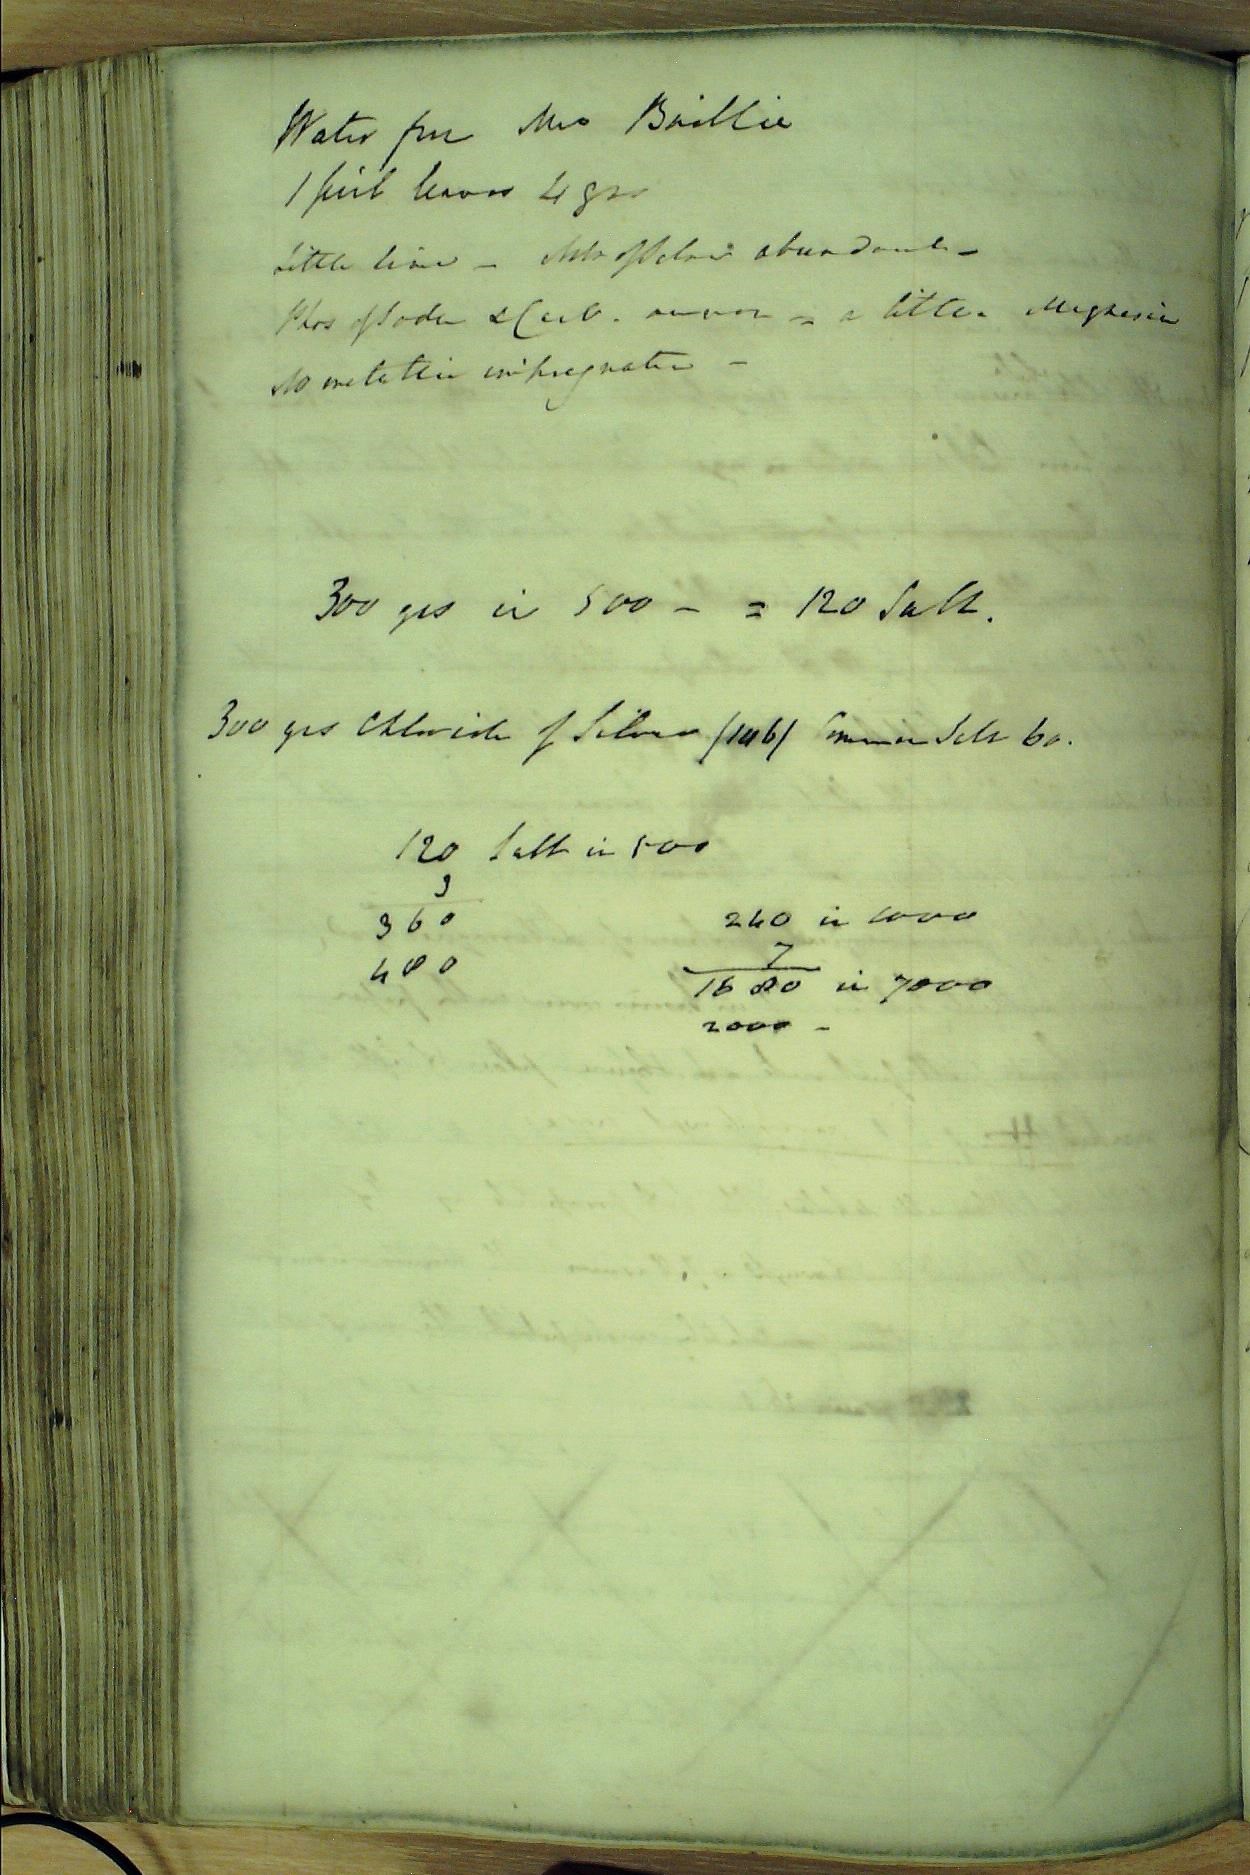 Water from Mrs Baillie
1 pint leaves 4 grs
Little lime - Nit of Silver abundant -
Phos of Soda & Carb. ammon = a little Magnesia
No metallic impregnation -
300 grs in 500 - = 120 Salt.
300 grs Chloride of Silver /146/ Common Salt 60.
120 Salt in 500
3
360
480
240 in 1000
7
1680 in 7000
2000 -